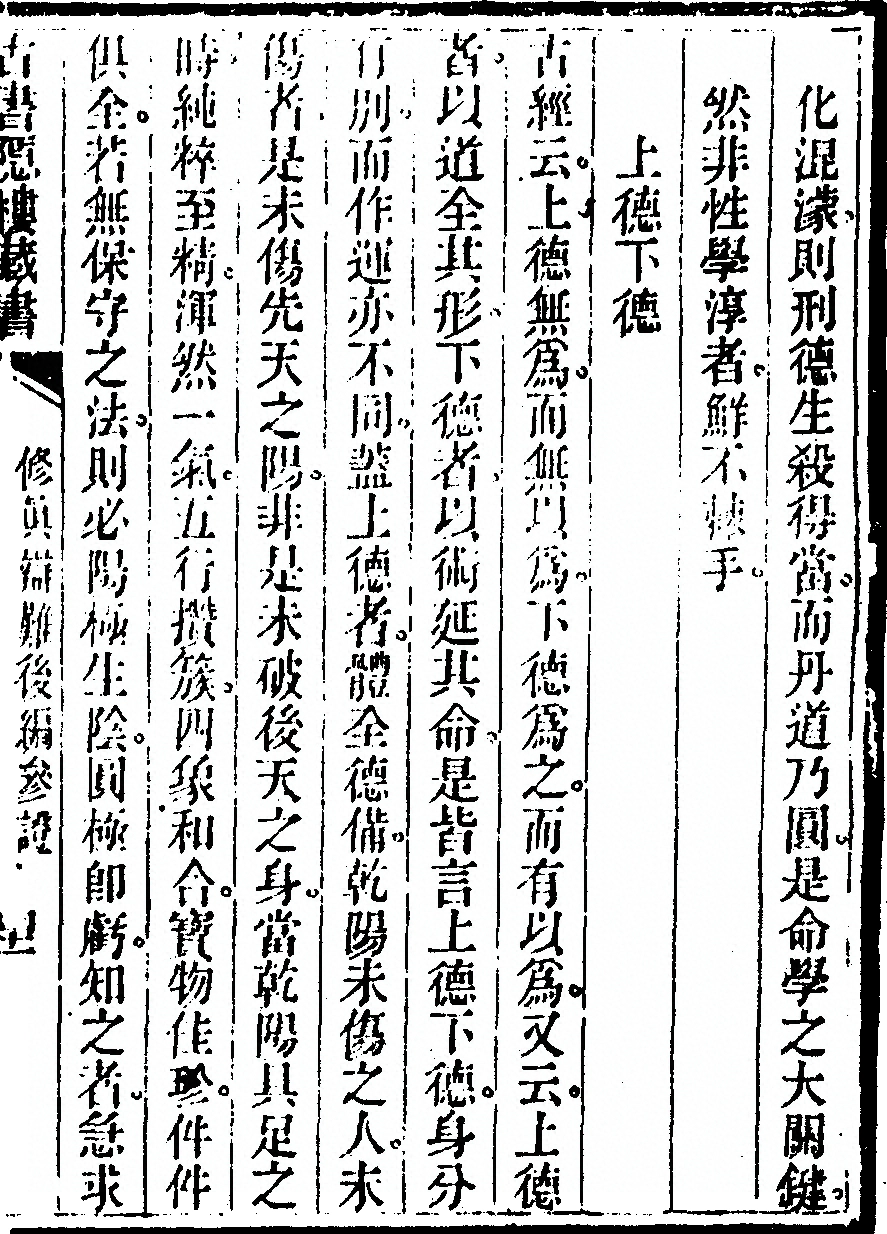 化混濛則刑德生殺得當而丹道乃圓是命學之大關鍵
然非性學淳者鮮不棘手
上德下德
古經云上德無爲而無以爲下德爲之而有以爲又云上德
者以道全其形下德者以術延其命是皆言上德下德身分
有別而作運亦不同蓋上德者體全德備乾陽未傷之人未
傷者是未傷先天之陽非是未破後天之身當乾陽具足之
時純粹至精渾然一氣五行攢簇四象和合寶物佳珍件件
俱全若無保守之法則必陽極生陰圓極卽虧知之者急求
古書隱樓藏書
修眞辯難後編參證